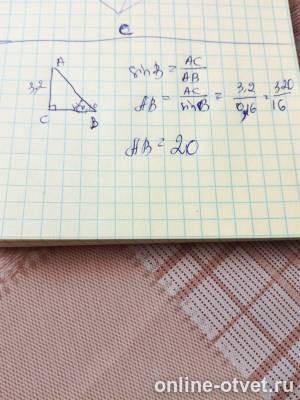 C
A
3,2
C
B
sinB = AC/AB
AB = AC/sinB = 3,2/0,16 = 320/16
AB = 20
online-otvet.ru